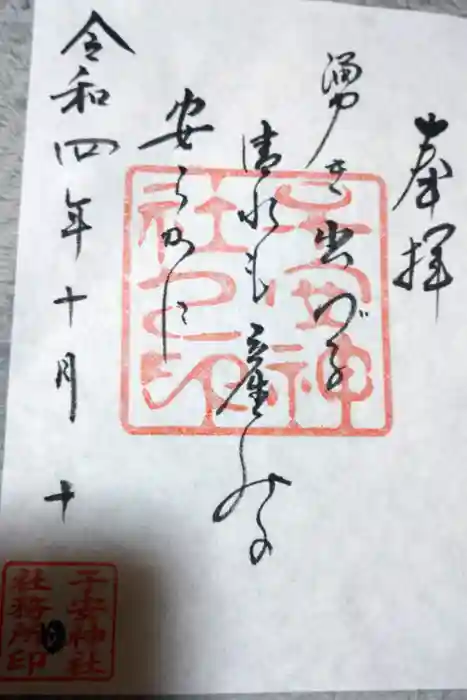 奉拝
湧き出づる
清水も産しみの
安らかに
令和四年十月十
子安神
社之印
子安神社
社務所印